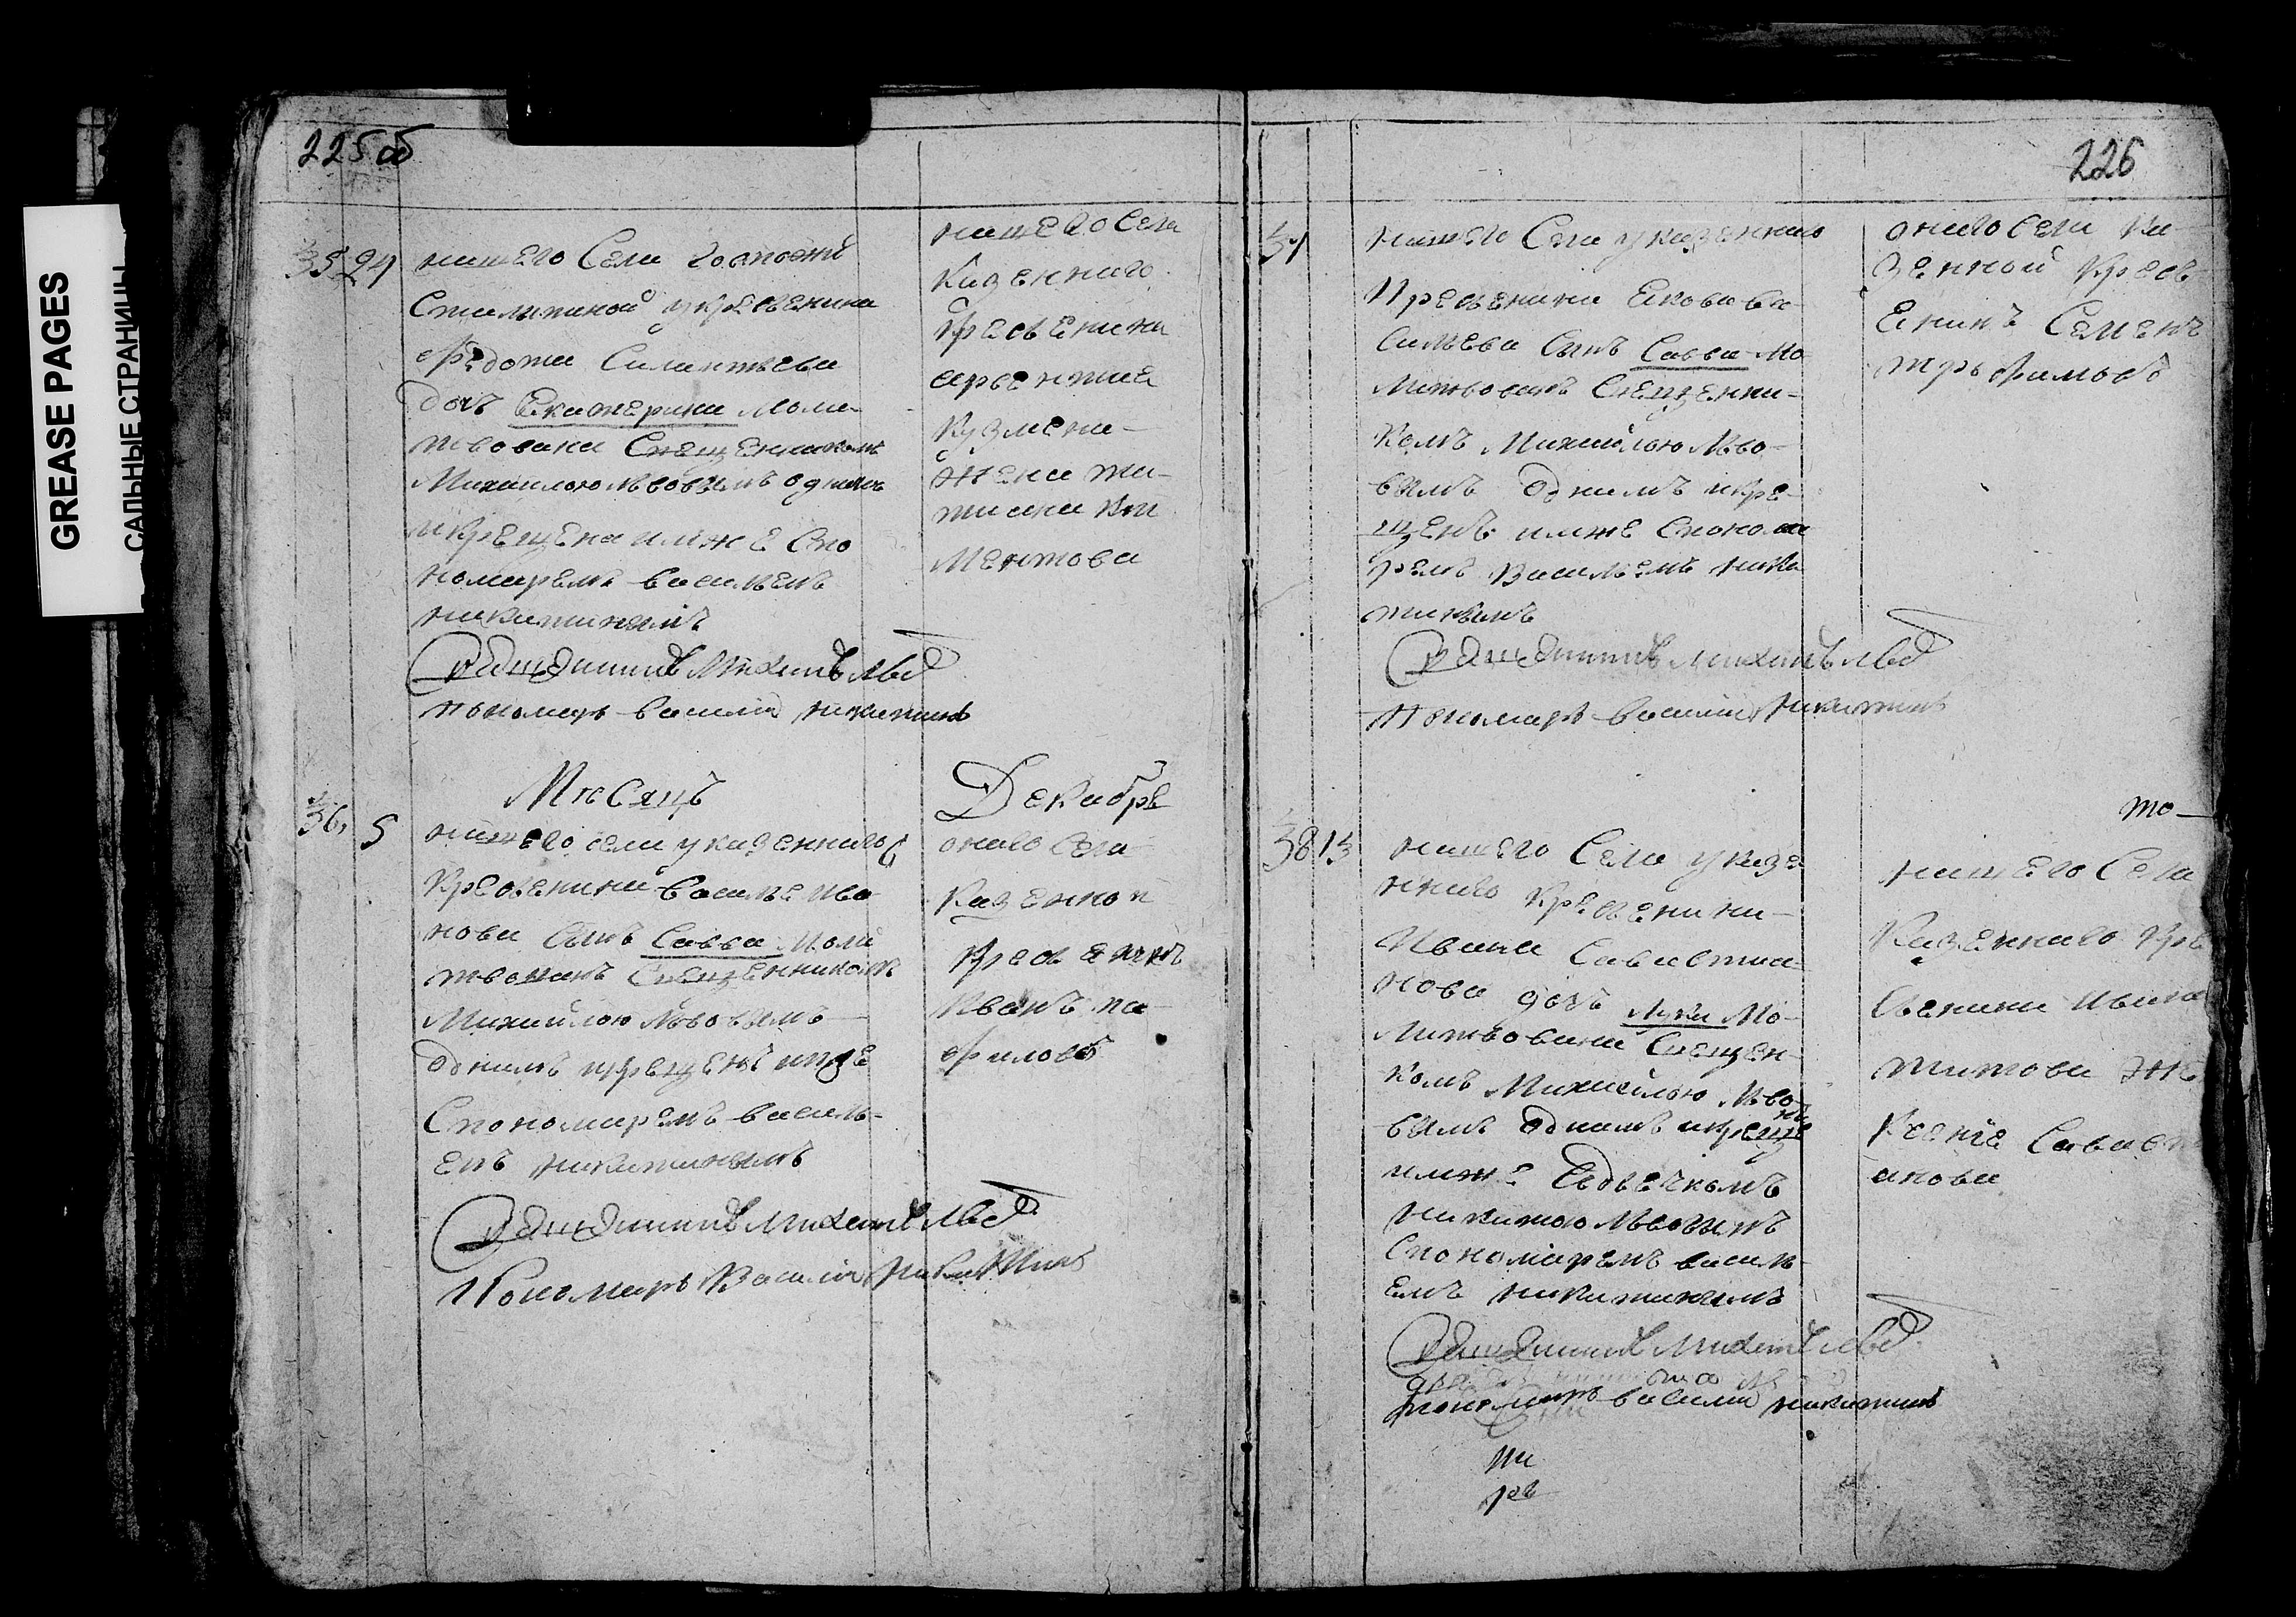 GREASE PAGES
САЛЬНЫЕ СТРАНИЦЫ
225 об
35 24
нашего Села Госпожи
Стальпиной у крестьянина
Федота Силантьева
дочь Екатерина Моли-
твована Священникомъ
Михайлою Львовымъ однимъ
и Крещена имже Спо
номаремъ василиемъ
никитинымъ
нашего Села
Казеннаго
Крестьянина
Кузмина
жена
Священникъ Михаилъ Львовъ
пономарь василий никитинъ
Месяцъ
Декабрь
36 5
нашего села у казеннаго
Крестьянина василья ива
нова сынъ Савва Моли
твованъ Священникомъ
Михайлою Львовымъ
однимъ и крещенъ имже
Спономаремъ василь-
емъ никитинымъ
онаго Села
Казенной
Крестьянинъ
иванъ па-
Филовъ
Священникъ Михаилъ Львовъ
Пономарь Василий Никитинъ
226
37
нашего Села у казеннаго
Крестьянина Якова ва
сильева сынъ Савва Мо
литвованъ Священни-
комъ Михайлою Льво-
вымъ однимъ и кре-
щенъ имже Спонома
ремъ Васильемъ Ники
тинымъ
онаго села Ка
зенной Кресть
янинъ Семенъ
трофимовъ
Священникъ Михаилъ Львовъ
Пономарь василий Никитинъ
то-
38 13
нашего Села у казе
ннаго Крестьянина
Ивана Савастиа
нова дочь Мо-
литвована Священ-
комъ Михайлою Льво
вымъ однимъ и креще
на
имже Сдьячкомъ
никитою Львовымъ
Спономаремъ василь
емъ никитинымъ
нашего Села
Казеннаго Кре
стьянина Ивана
Титова же
Ксения Саваст
анова
Священникъ Михаилъ Львовъ
пономарь василий никитинъ